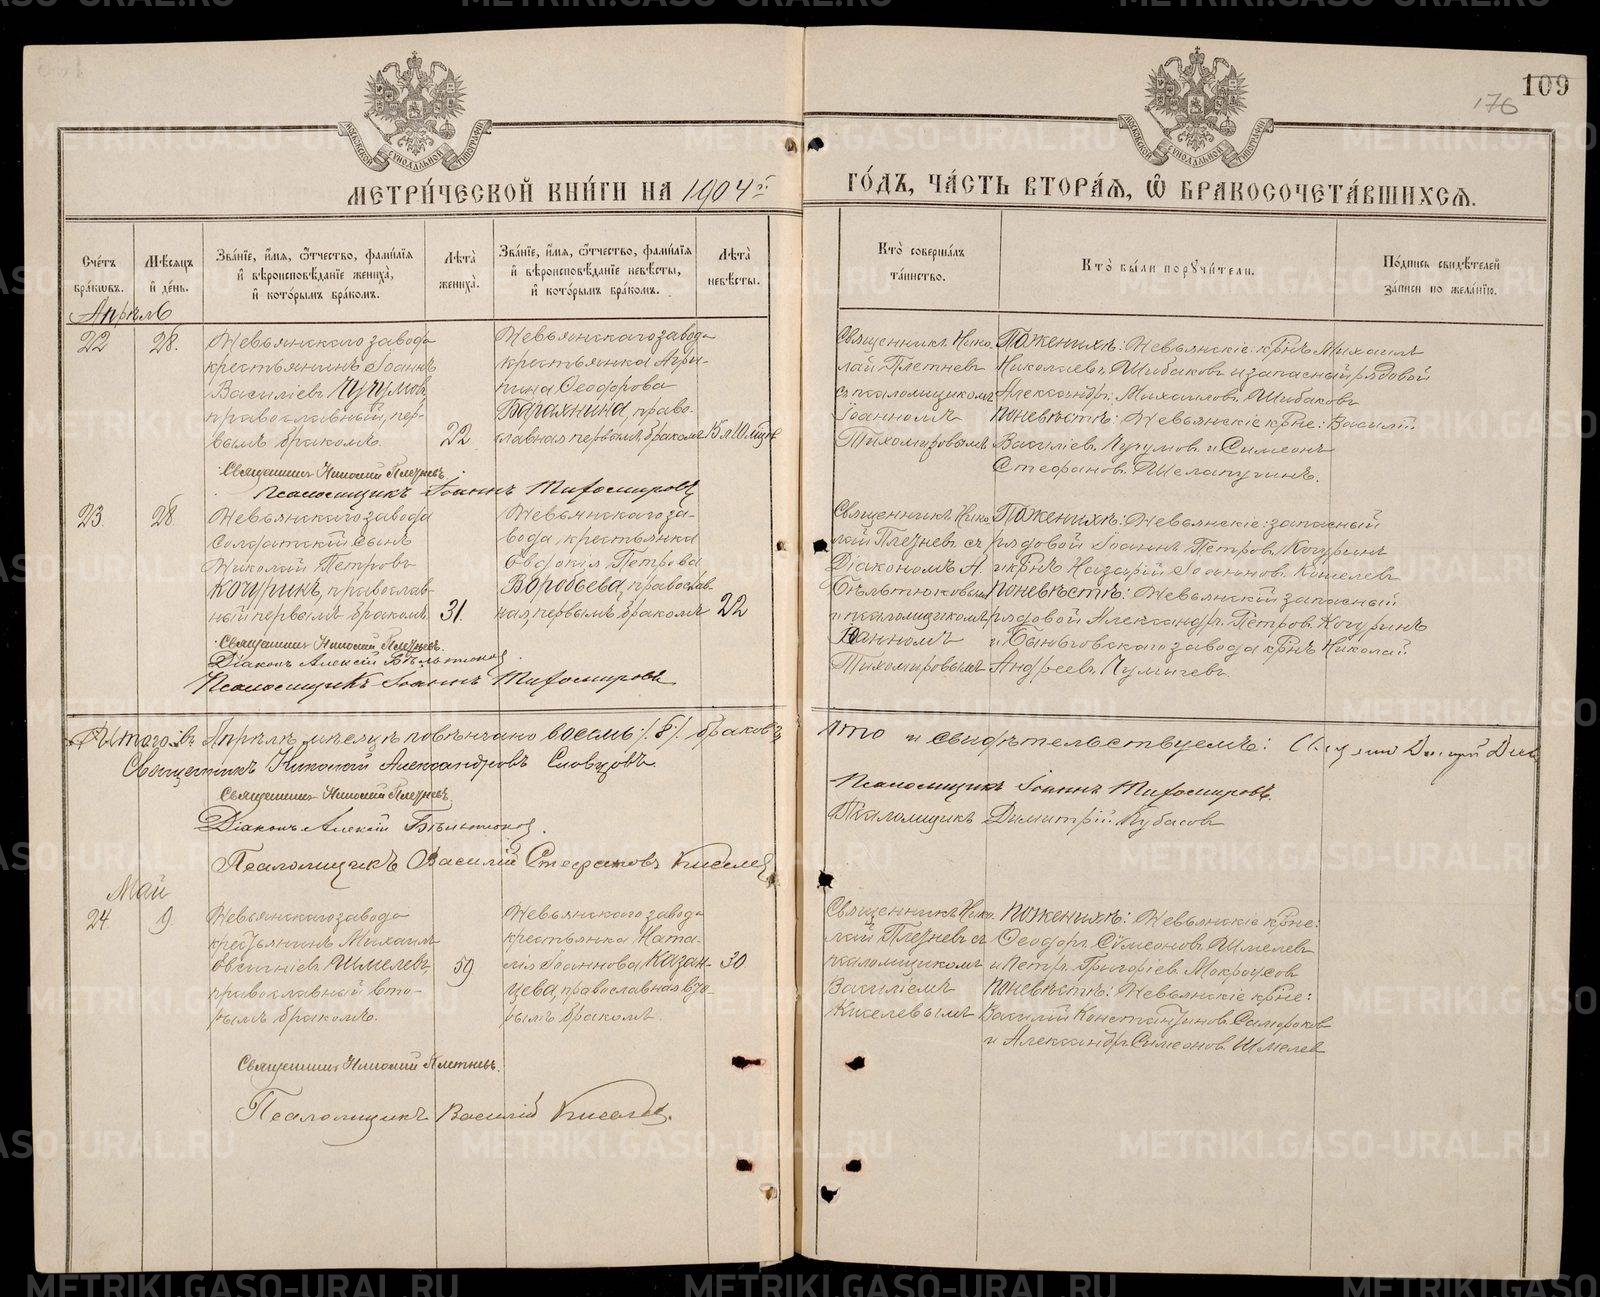 109
176
МЕТРИ́ЧЕСКОЙ КНИ́ГИ НА 1904 й
ГО́ДЪ, ЧА́СТЬ ВТОРА́Ѧ, Ѡ҆ БРАКОСОЧЕТА́ВШИХСѦ.
Сче́тъ бра́кωвъ.
Мѣ́сѧцъ и҆ де́нь.
Зва́нїе, и҆́мѧ, ѻ҆́тчество, фами́лїѧ и҆ вѣроисповѣ́данїе жениха̀, и҆ кото́рымъ бра́комъ.
Лѣ́та̀ жениха̀.
Зва́нїе, и҆́мѧ, ѻ҆́тчество, фами́лїѧ и҆ вѣроисповѣ́данїе невѣ́сты, и҆ кото́рымъ бра́комъ.
Лѣ́та̀ невѣ́сты.
Кто̀ соверша́лъ та́инство.
Кто̀ бы́ли порꙋчи́тели.
По́дпись свидѣ́телей за́писи по жела́нїю.
Апрѣль
22
28.
Невьянскаго завода
крестьянинъ Іоаннъ
Василіевъ Чучумовъ,
православный, пер-
вымъ бракомъ.
22
Невьянскаго завода
крестьянка Агри-
пина Ѳеодорова
православная первымъ бракомъ
Священникъ Нико-
лай Плетневъ
съ псаломщикомъ
Іоанномъ
Тихомировымъ
По женихѣ: Невьянскіе: крнъ Михаилъ
Николаевъ Шибаковъ и запасный рядовой
Александръ Михаиловъ Шибаковъ
по невѣстѣ: Невьянскіе крне: Василій
Василіевъ и Симеонъ
Стефановъ Шелапугинъ.
Священникъ Николай Плетневъ.
Псаломщикъ Іоаннъ Тихомировъ
23
28
Невьянскаго завода
Солдатскій сынъ
Николай Петровъ
Кочуринъ, православ-
ный первымъ бракомъ.
31.
Невьянскаго за-
вода, крестьянка
Евдокія Петрова
Воробьева, православ-
ная, первымъ бракомъ
22
Священникъ Нико-
лай Плетневъ съ
Діакономъ А.
Бѣльтюковымъ
и псаломщикомъ
Іоанномъ
Тихомировымъ
По женихѣ: Невьянскіе: запасный
рядовой Іоаннъ Петровъ Кочуринъ
и крнъ Назарій Іоанновъ Киселевъ
По невѣстѣ: Невьянскій запасный
рядовой Александръ Петровъ Кочуринъ
и Быньговскаго завода крнъ Николай
Андреевъ Чумичевъ.
Священникъ Николай Плетневъ.
Діаконъ Алексій Бѣльтюковъ
Псаломщикъ Іоаннъ Тихомировъ
Итого въ Апрѣлѣ мѣсяцѣ повѣнчано восемь /8/ браковъ,
что и свидѣтельствуемъ:
Священникъ Николай Александровъ Словцовъ.
Священникъ Николай Плетневъ
Діаконъ Алексій Бѣльтюковъ.
Псаломщикъ Василій Стефановъ Киселевъ
Псаломщикъ Іоаннъ Тихомировъ.
Псаломщикъ Димитрій Кубасовъ
Май
24.
9.
Невьянскаго завода
крестьянинъ Михаилъ
Евсигніевъ Шмелевъ,
православный вто-
рымъ бракомъ.
59
Невьянскаго завода
крестьянка Ната-
лія Іоаннова Казан-
цева, православная вто-
рымъ бракомъ.
30
Священникъ Нико-
лай Плетневъ съ
псаломщикомъ
Василіемъ
Киселевымъ
По женихѣ: Невьянскіе крне:
Ѳеодоръ Симеоновъ Шмелевъ
и Петръ Григоріевъ Мокроусовъ
По невѣстѣ: Невьянскіе крне:
Василій Константиновъ Сапороковъ
и Александръ Симеоновъ Шмелевъ
Священникъ Николай Плетневъ.
Псаломщикъ Василій Киселевъ.
METRIKI.GASO-URAL.RU